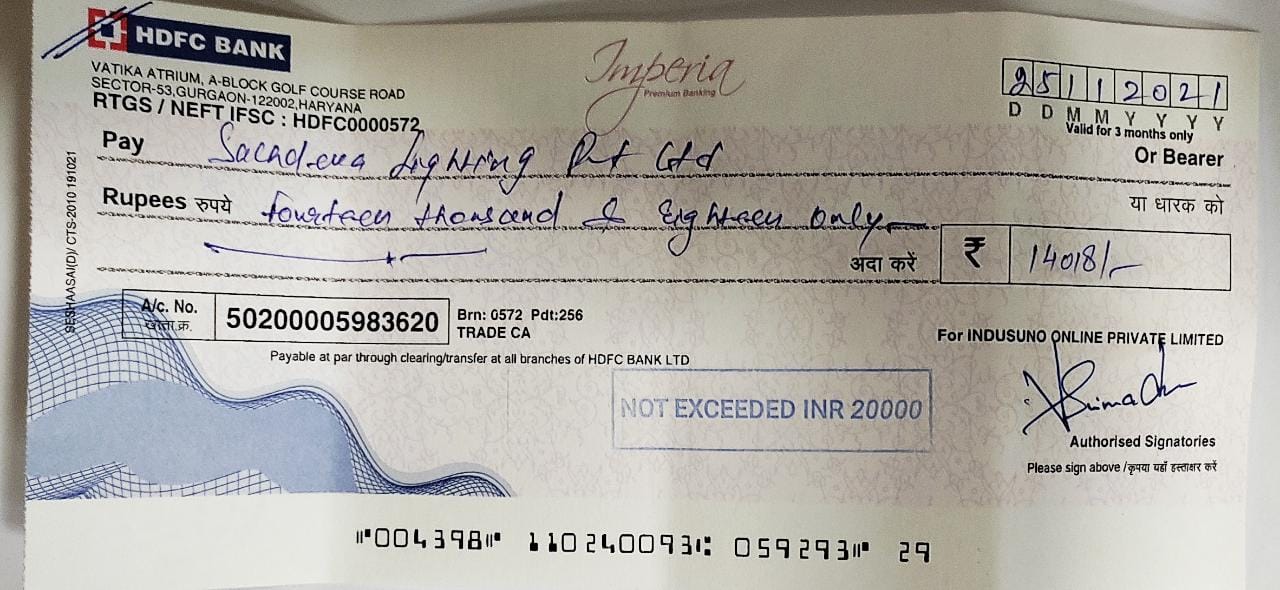 HDFC BANK
VATIKA ATRIUM, A-BLOCK GOLF COURSE ROAD
SECTOR-53,GURGAON-122002,HARYANA
RTGS / NEFT IFSC : HDFC0000572
Imperia
Premium Banking
25112021
D D M M Y Y Y Y
Valid for 3 months only
Pay Sachdeva Lighting Pvt Ltd Or Bearer
Rupees रुपये Fourteen thousand & Eighteen only या धारक को
अदा करें ₹ 14018/-
A/c. No.
खाता.क्र.
50200005983620
Brn: 0572 Pdt:256
TRADE CA
Payable at par through clearing/transfer at all branches of HDFC BANK LTD
For INDUSUNO ONLINE PRIVATE LIMITED
NOT EXCEEDED INR 20000
Authorised Signatories
Please sign above /कृपया यहाँ हस्ताक्षर करें
SESHAASAI(D)/ CTS-2010 191021
⑈004398⑈ 110240093⑆ 059293⑈ 29